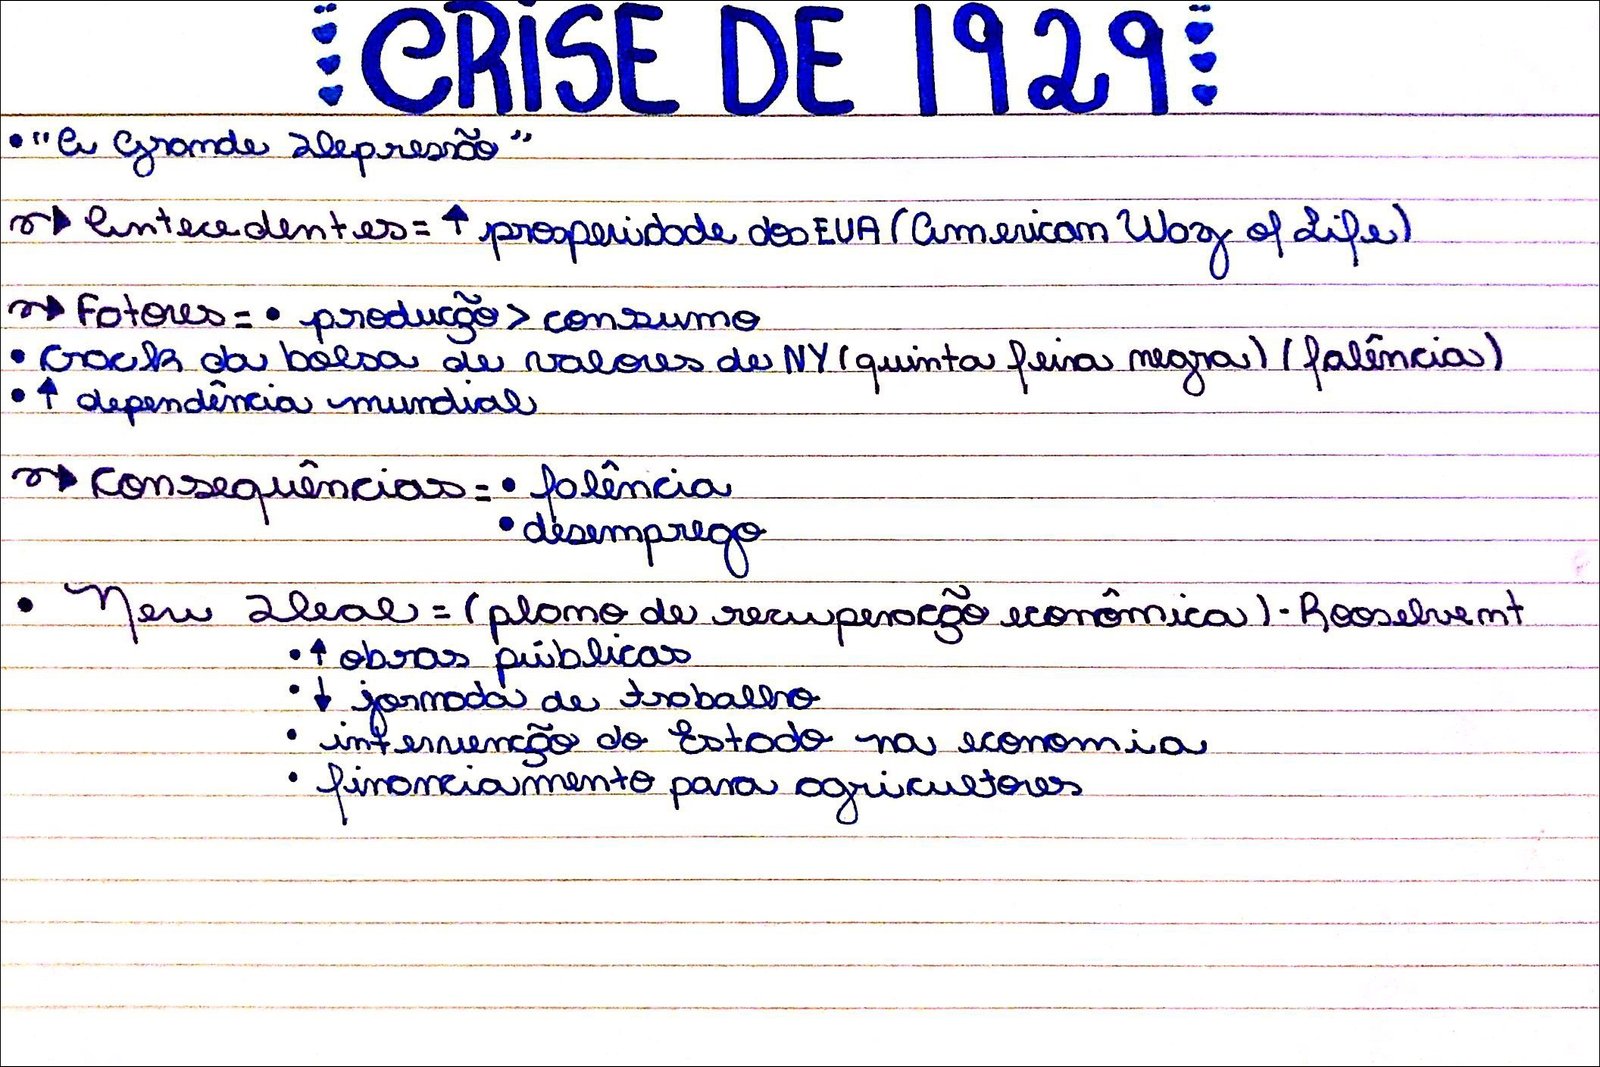 CRISE DE 1929
• "A Grande Depressão"
→ Antecedentes = ↑ prosperidade dos EUA (American Way of Life)
→ Fatores = • produção > consumo
• crack da bolsa de valores de NY (quinta feira negra) (falência)
• ↑ dependência mundial
→ Consequências = • falência
• desemprego
• New Deal = (plano de recuperação econômica) - Rooselvent
• ↑ obras públicas
• ↓ jornada de trabalho
• intervenção do Estado na economia
• financiamento para agricultores